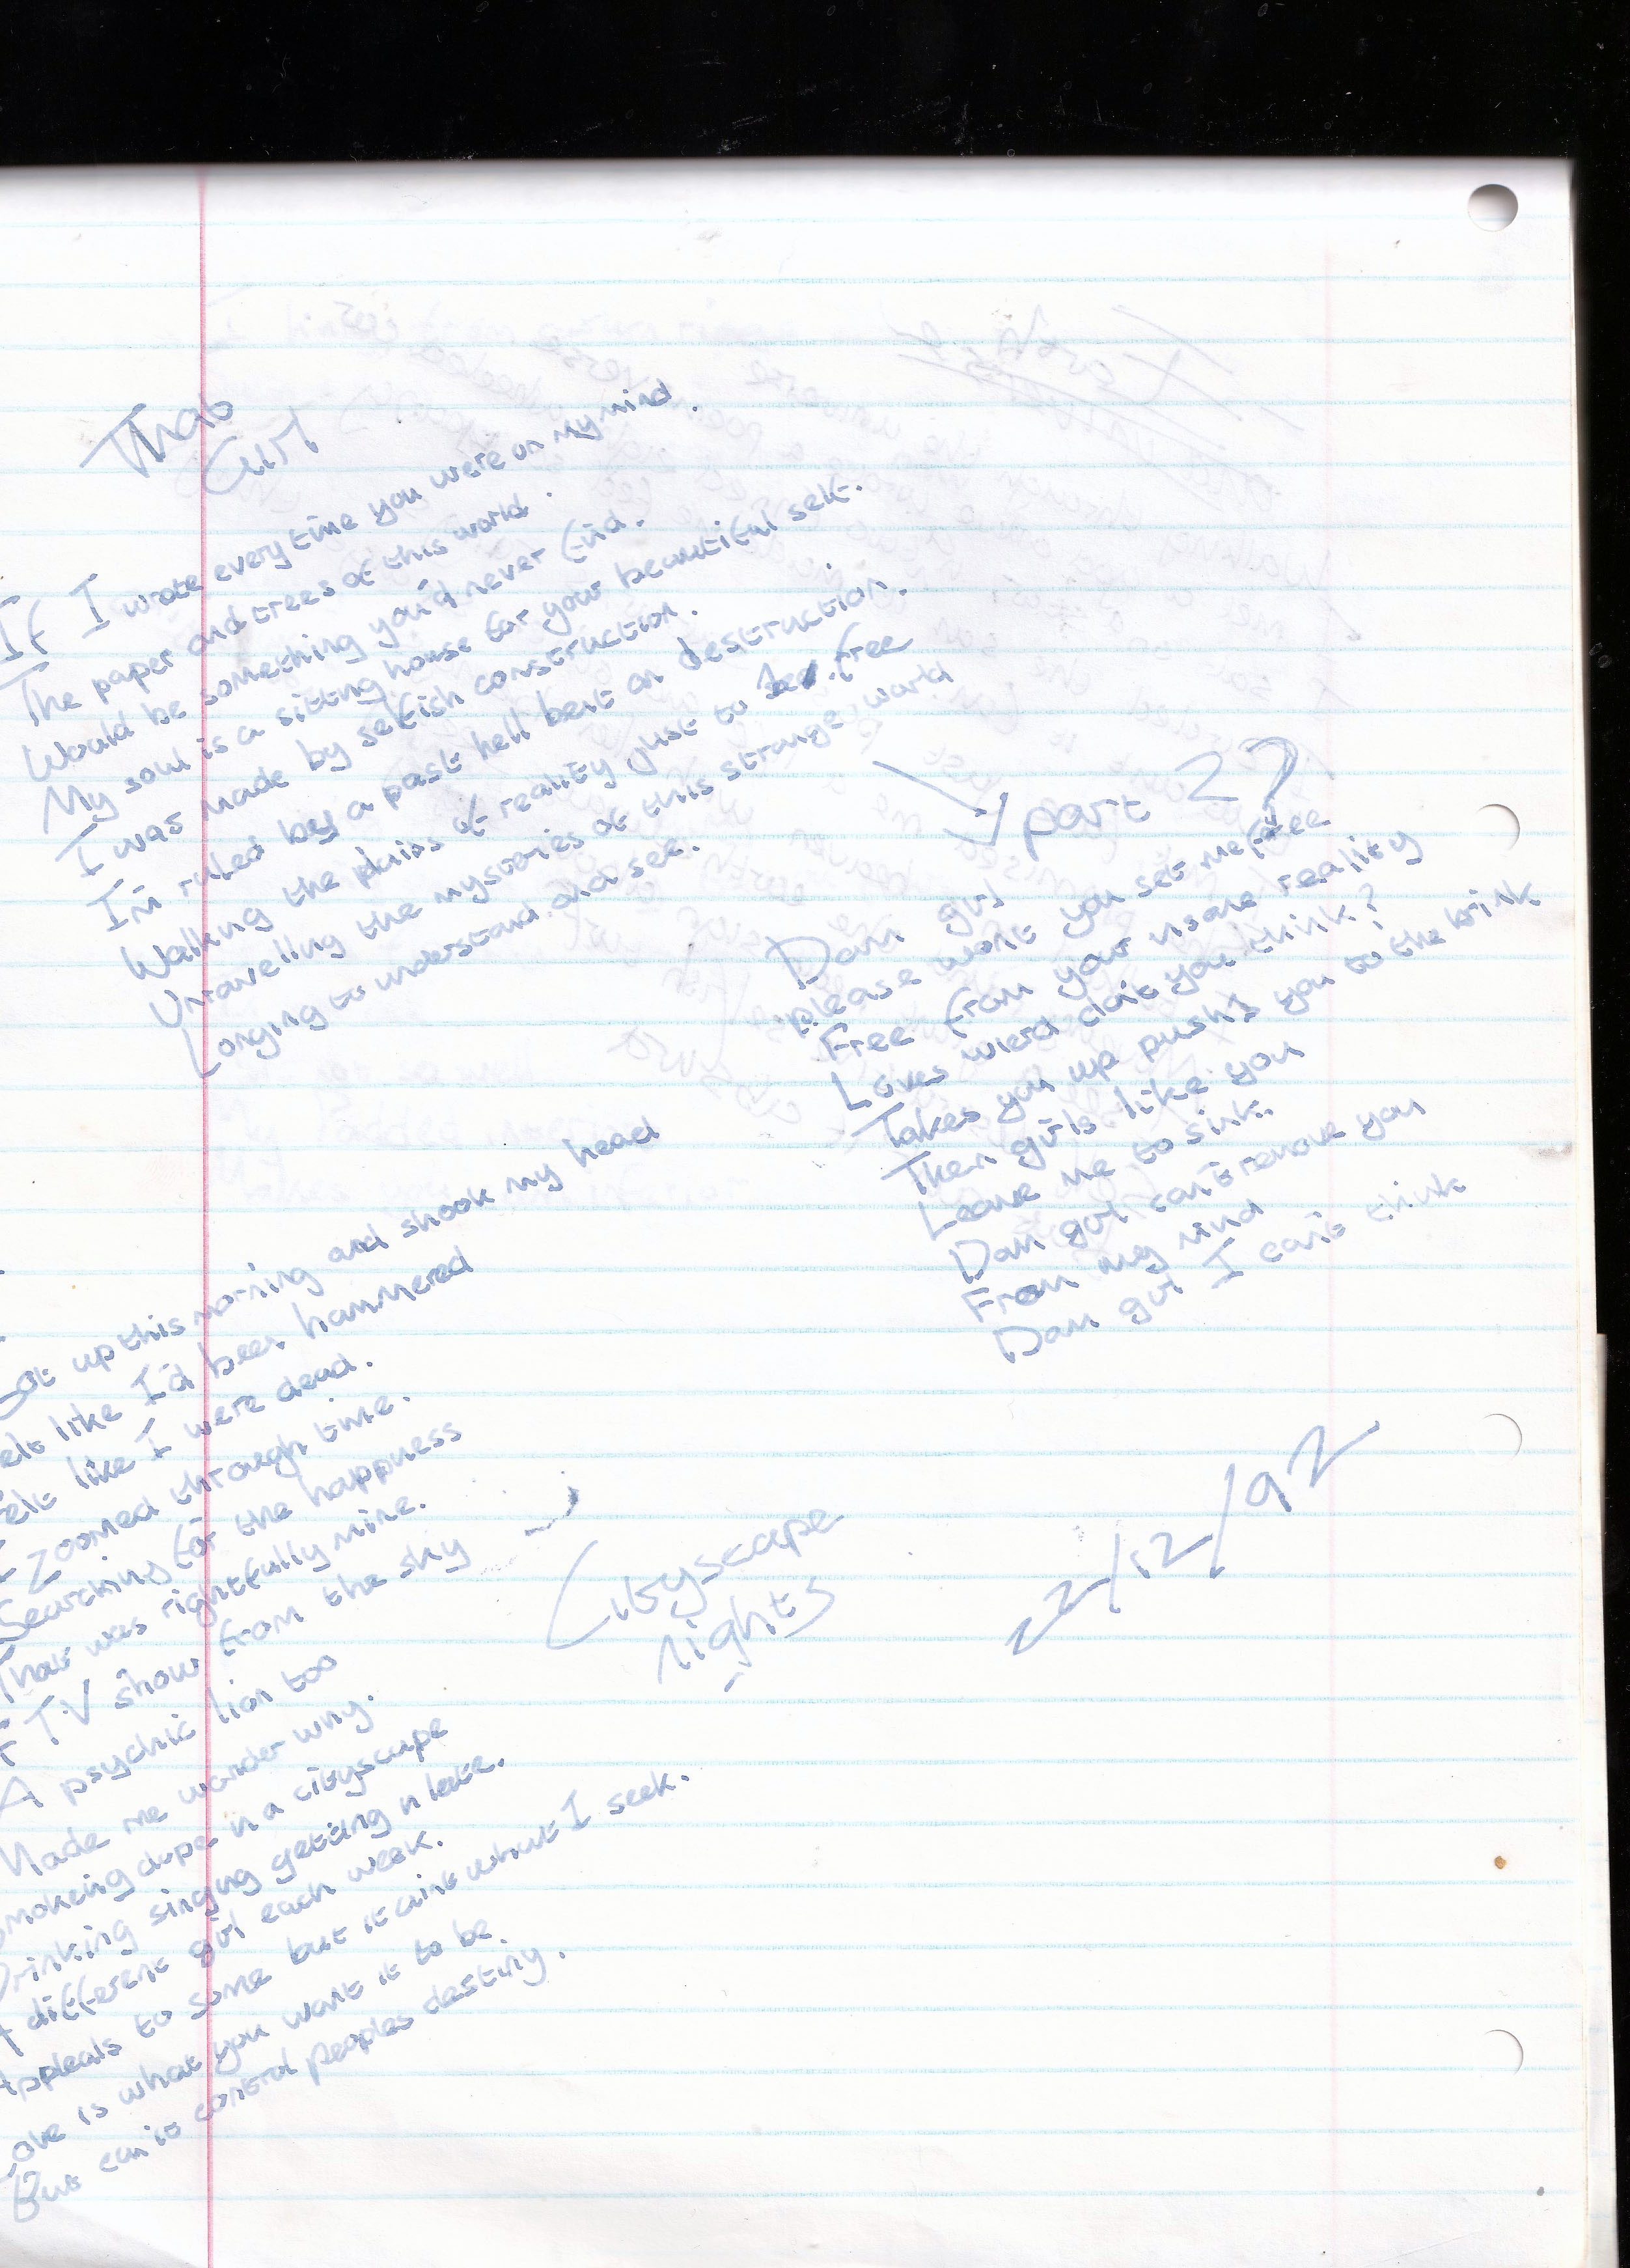 That
Girl
If I wrote everytime you were on my mind.
The paper and trees of this world.
Would be something you'd never find.
My soul is a sitting house for your beautiful self.
I was made by selfish construction.
I'm ruled by a past hell bent on destruction.
Walking the plains of reality just to be free
Unraveling the mysteries of this strange world
Longing to understand and see.
part 2?
Dam girl
please wont you set me free
Free from your insane reality
Loves wierd dont you think?
Takes you up pushs you to the brink
Then girls like you
Leave me to sink.
Dam girl can't remove you
From my mind
Dam girl I can't think
Got up this morning and shook my head
elt like I'd been hammered
elt like I were dead.
I zoomed through time.
Searching for the happiness
That was rightfully mine.
A T.V show from the sky
A psychic lion too
Made me wonder why.
Smoking dope in a cityscape
Drinking singing getting n late.
A different girl each week.
Appleals to some but it aint what I seek.
Love is what you want it to be
But can it control peoples destiny.
Cityscape
nights
22/12/92